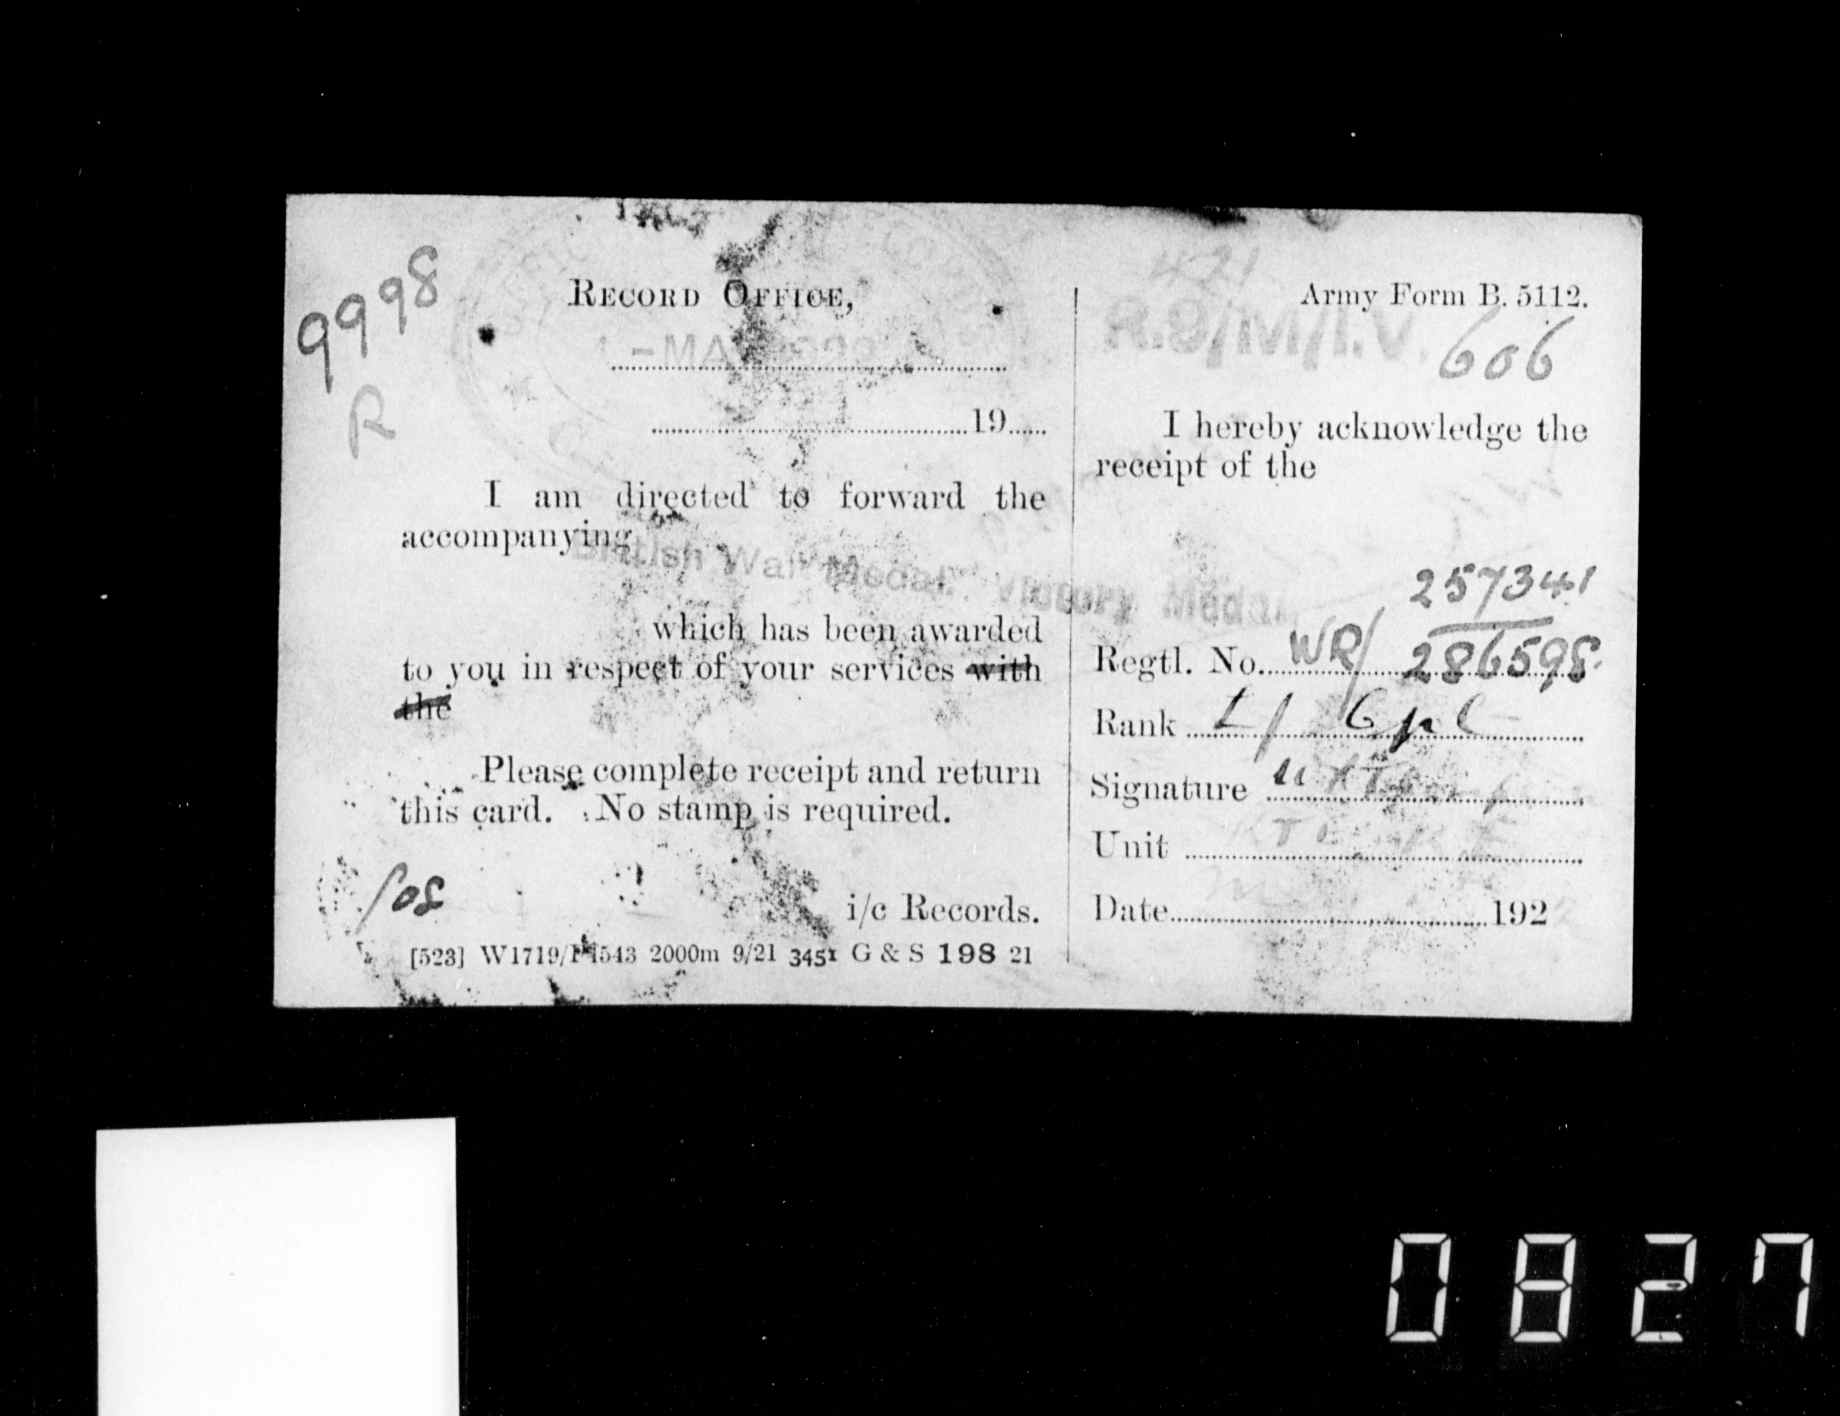 9998
R
RECORD OFFICE,
19
I am directed to forward the
accompanying
British War Medal. Victory Medal
which has been awarded
to you in respect of your services with
the
Please complete receipt and return
this card. No stamp is required.
i/c Records.
[523] W1719/ 2000m 9/21 3451 G & S 198 21
421
Army Form B. 5112.
R.9/M/I.V. 606
I hereby acknowledge the
receipt of the
257341
Regtl. No. WR/ 286598
Rank L/Cpl
Signature
Unit
Date 192
0827